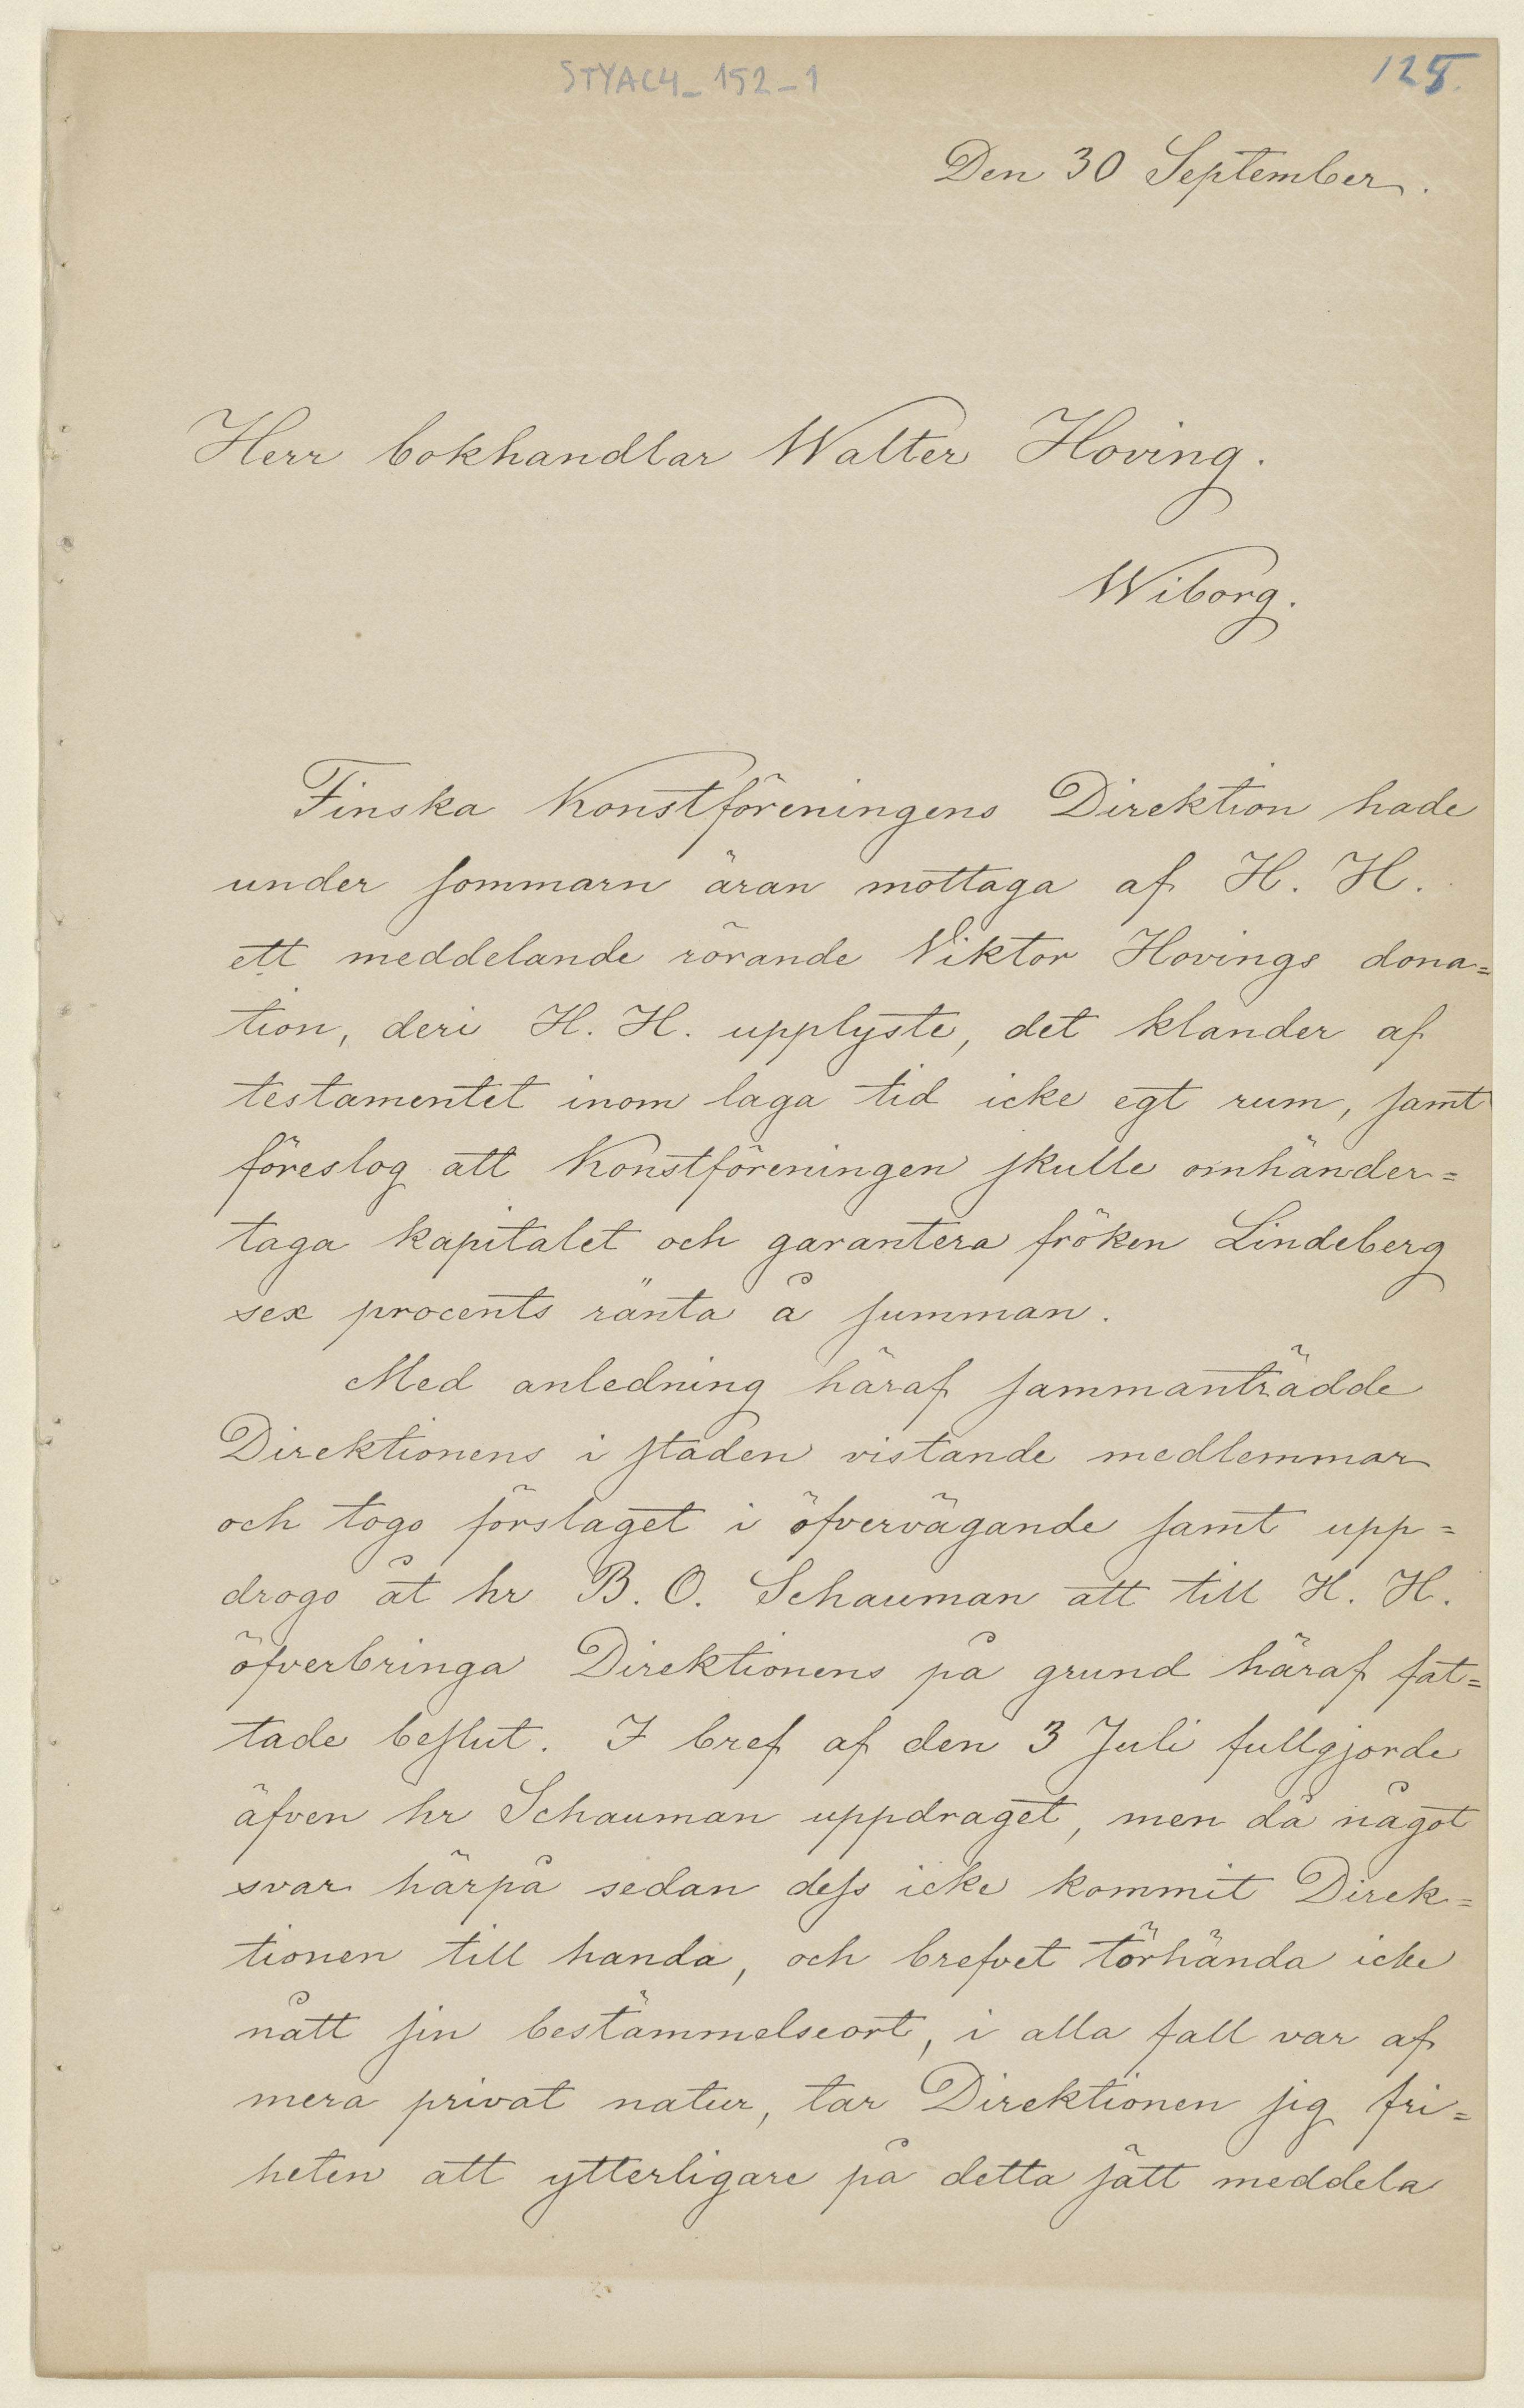 STYAC4_152_1
125.
Den 30 September.
Herr bokhandlar Walter Hoving.
Wiborg.
Finska Konstföreningens Direktion hade
under sommarn äran mottaga af H. H.
ett meddelande rörande Viktor Hovings dona=
tion, deri H. H. upplyste, det klander af
testamentet inom laga tid icke egt rum, samt
föreslog att Konstföreningen skulle omhänder=
taga kapitalet och garantera fröken Lindeberg
sex procents ränta å summan.
Med anledning häraf sammanträdde
Direktionens i staden vistande medlemmar
och togo förslaget i öfvervägande samt upp=
drogo åt hr B. O. Schauman att till H. H.
öfverbringa Direktionens på grund häraf fat=
tade beslut. I bref af den 3 Juli fullgjorde
äfven hr Schauman uppdraget, men då något
svar härpå sedan dess icke kommit Direk=
tionen till handa, och brefvet törhända icke
nått sin bestämmelseort, i alla fall var af
mera privat natur, tar Direktionen sig fri=
heten att ytterligare på detta sätt meddela